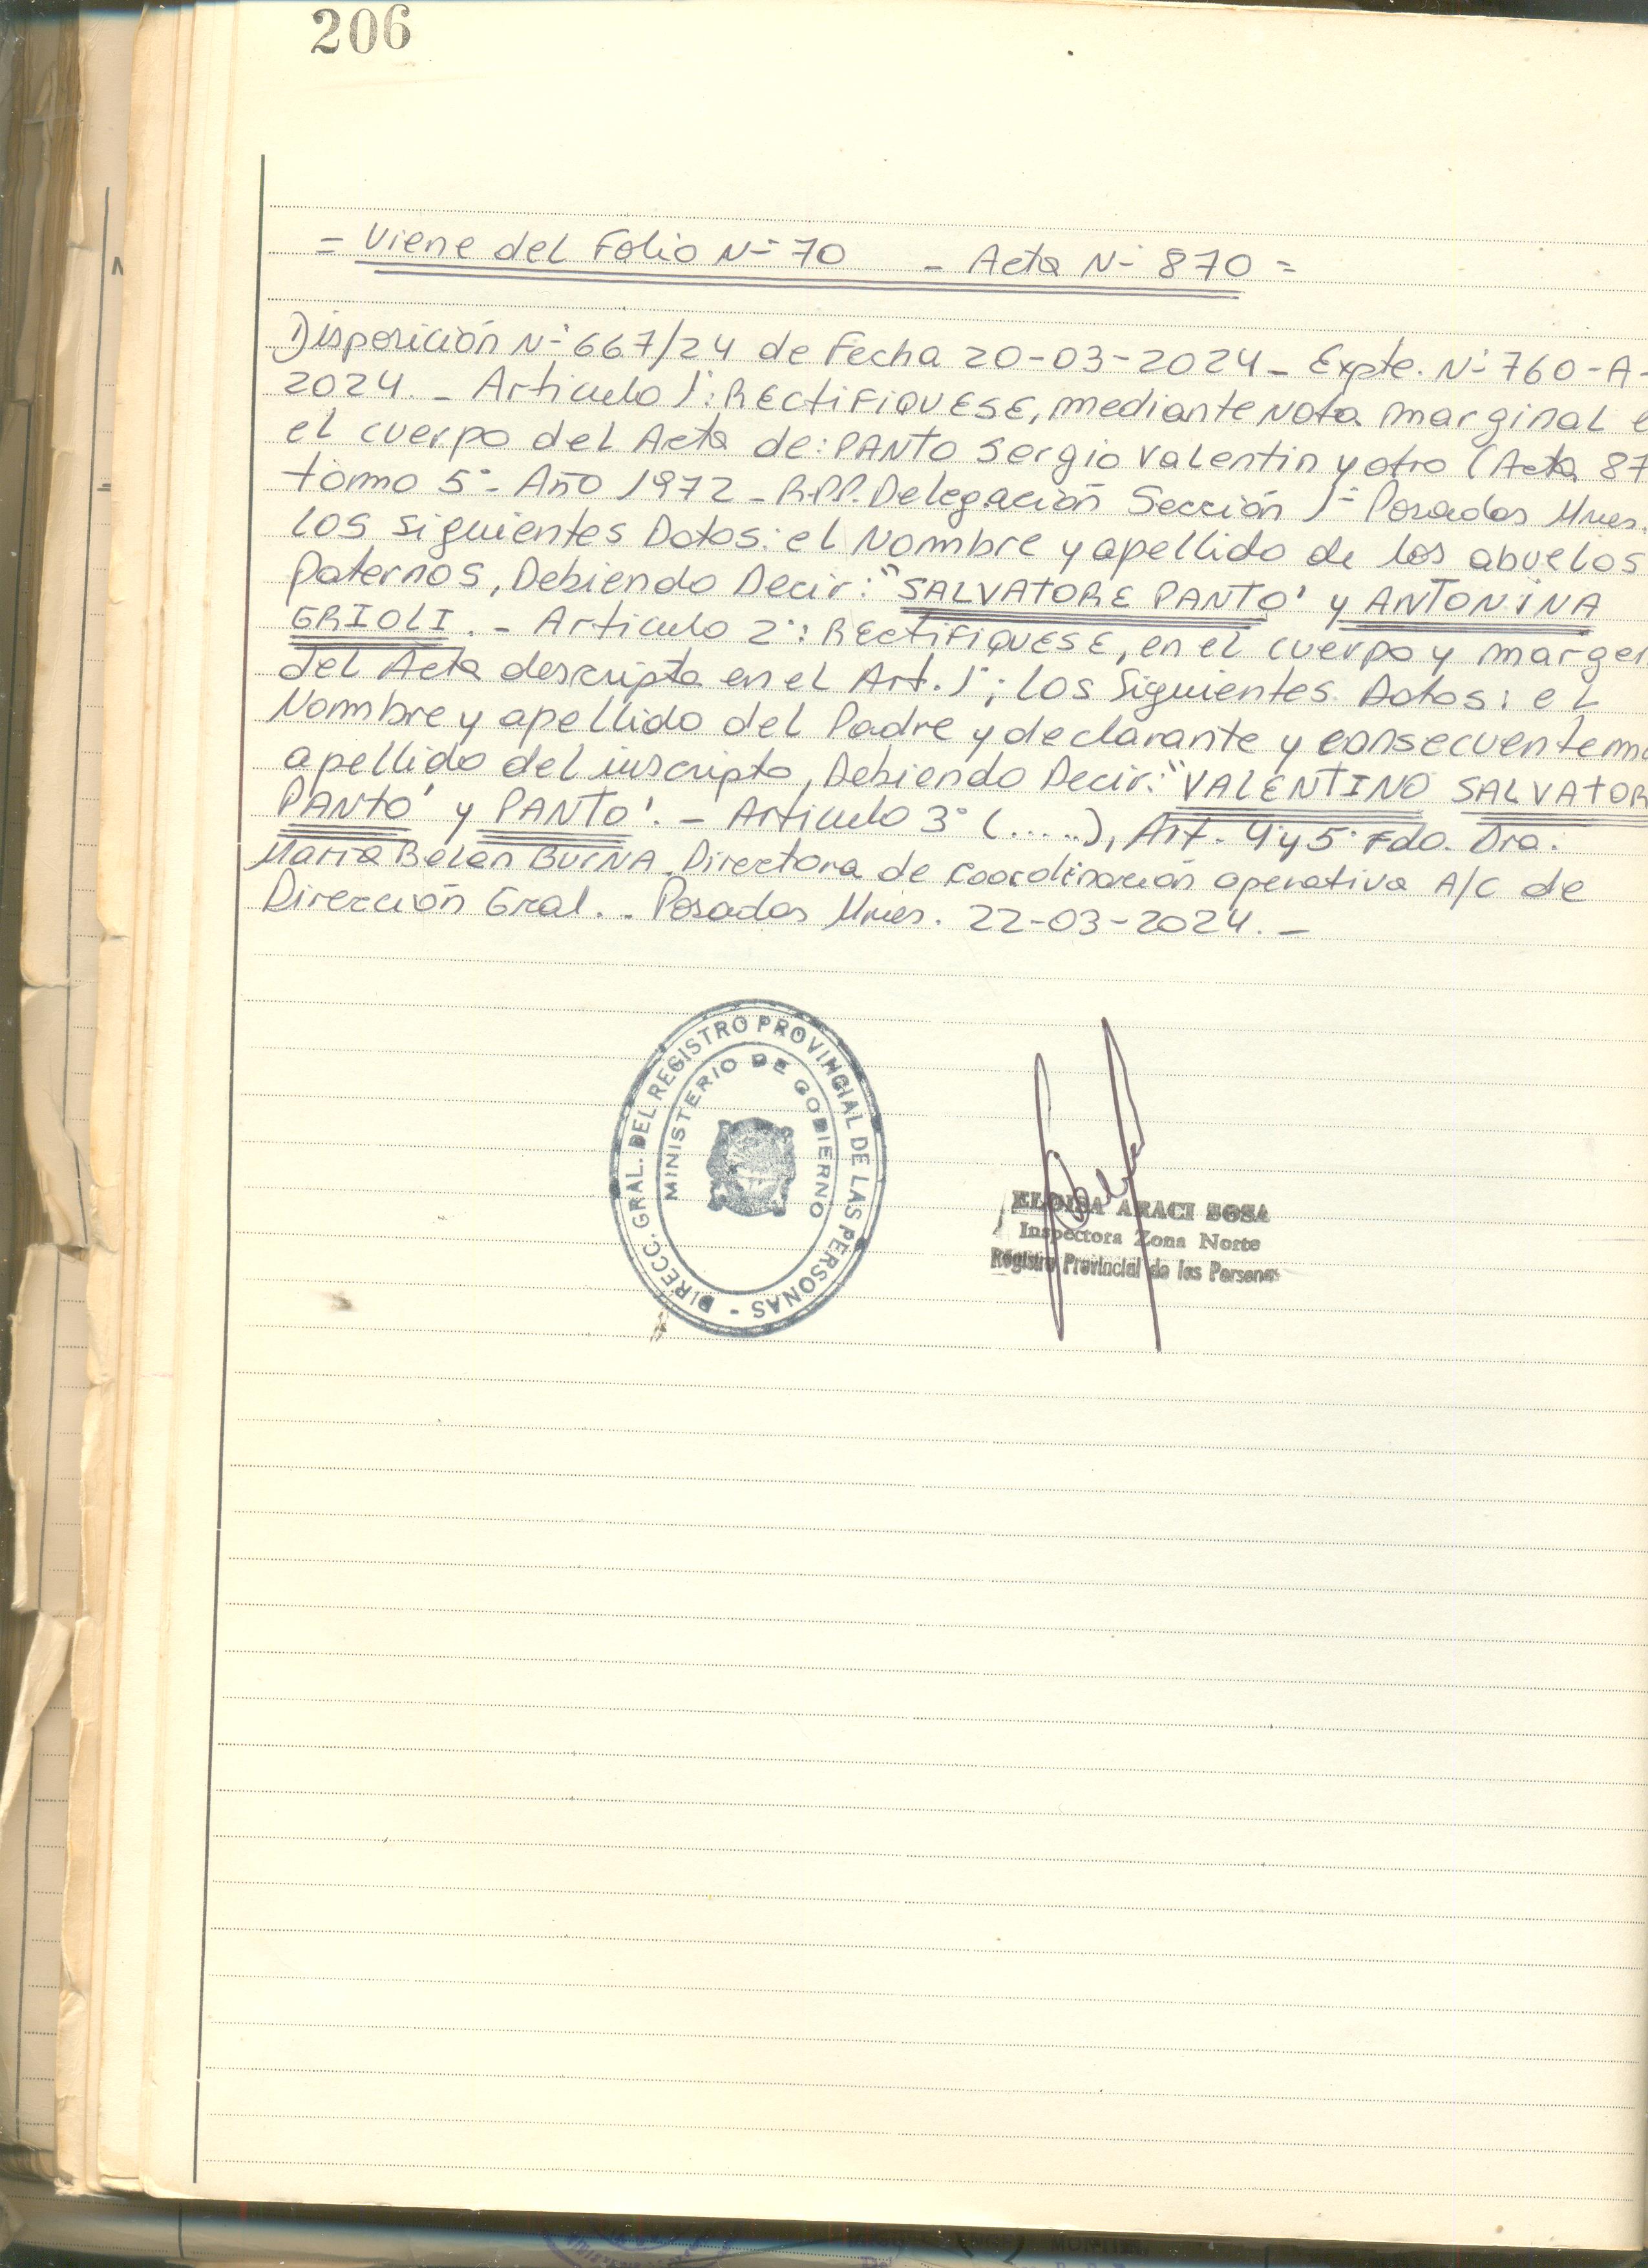 206
= Viene del Folio Nº 70 - Acta Nº 870 =
Disposición Nº 667/24 de Fecha 20-03-2024 - Expte. Nº 760-A-
2024. - Articulo 1º: RECTIFIQUESE, mediante Nota marginal e
el cuerpo del Acta de: PANTO Sergio Valentin y otro (Acta 87
tomo 5º - Año 1972 - R.P.P. Delegación Sección 1º Posadas Mnes.
los siguientes Datos: el Nombre y apellido de los abuelos
Paternos, Debiendo Decir: "SALVATORE PANTO' y ANTONINA
GRIOLI. - Articulo 2º: RECTIFIQUESE, en el cuerpo y marge
del Acta descripta en el Art. 1º; los Siguientes Datos: el
Nombre y apellido del Padre y declarante y consecuentem
apellido del inscripto, Debiendo Decir: "VALENTINO SALVATOR
PANTO' y PANTO'. - Articulo 3º (.....), Art. 4º y 5º Fdo. Dra.
Maria Belen BURNA. Directora de Coordinación operativa A/C de
Dirección Gral. . Posadas Mnes. 22-03-2024. -
DIRECC. GRAL. DEL REGISTRO PROVINCIAL DE LAS PERSONAS -
MINISTERIO DE GOBIERNO
ELOISA ARACI SOSA
Inspectora Zona Norte
Registro Provincial de las Personas